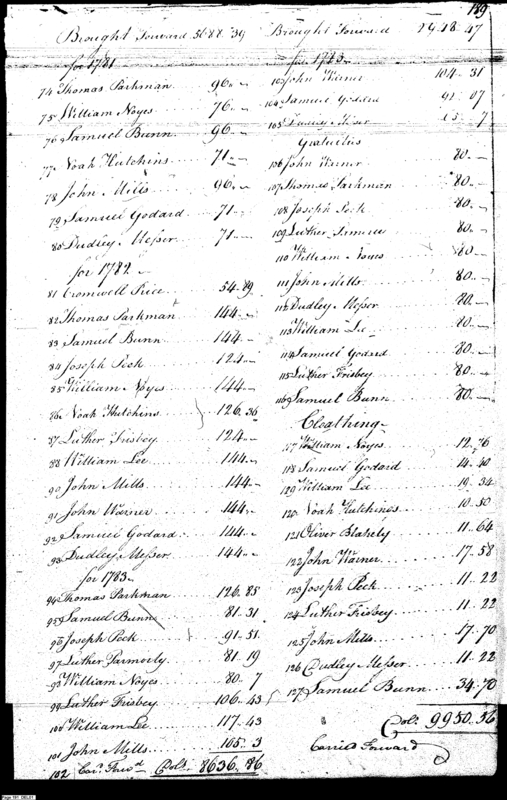 189
Brought Forward 5688. 39
for 1781
74 Thomas Parkman 96. "
75 William Noyes 76. "
76 Samuel Bunn 96 "
77 Noah Hutchins 71 "
78 John Mills 96. "
79 Samuel Godard 71 "
80 Dudley Messer 71 "
for 1782
81 Cromwell Price 54. 89
82 Thomas Parkman 144. "
83 Samuel Bunn 144. "
84 Joseph Peck 124. "
85 William Noyes 144. "
86 Noah Hutchins 126. 36
87 Luther Frisbey 124. "
88 William Lee 144. "
90 John Mills 144. "
91 John Warner 144. "
92 Samuel Godard 144. "
93 Dudley Messer 144. "
for 1783
94 Thomas Parkman 126. 85
95 Samuel Bunn 81. 31
96 Joseph Peck 91. 51
97 Luther Parmerly 81. 19
98 William Noyes 80. 7
99 Luther Frisbey 106. 43
100 William Lee 117. 43
101 John Mills 105. 3
102 Car.d Forw.d Dols. 8636. 86
Brought Forward 47
for 1783
103 John Warner 104. 31
104 Samuel Godard 91. 07
105 Dudley Messer 7
Gratuities
106 John Warner 80. "
107 Thomas Parkman 80. "
108 Joseph Peck 80. "
109 Luther 80. "
110 William Noyes 80. "
111 John Mills 80. "
112 Dudley Messer 80. "
113 William Lee 80. "
114 Samuel Godard 80. "
115 Luther Frisbey 80. "
116 Samuel Bunn 80. "
Cloathing
117 William Noyes 12. 76
118 Samuel Godard 14. 40
129 William Lee 19. 34
120 Noah Hutchings 10. 50
121 Oliver Blakely 11. 64
122 John Warner 17. 58
123 Joseph Peck 11. 22
124 Luther Frisbey 11. 22
125 John Mills 17. 70
126 Dudley Messer 11. 22
127 Samuel Bunn 34. 70
Dols. 9950. 56
Carried Forward